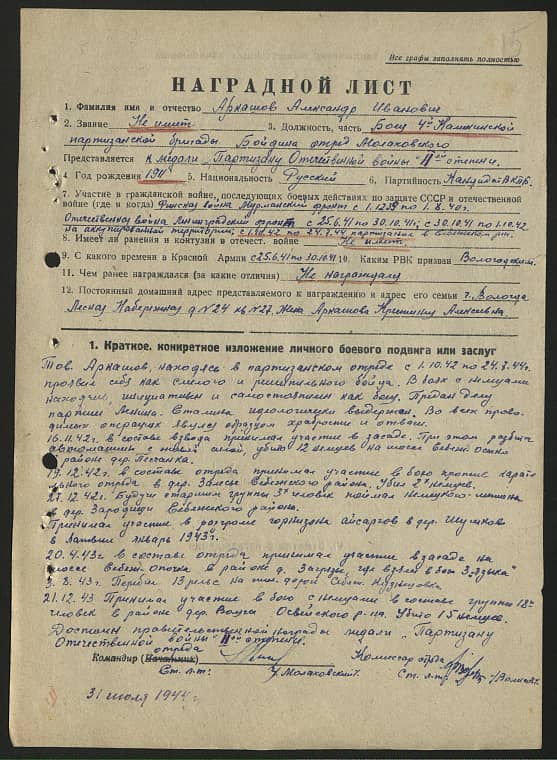 Все графы заполнять полностью
НАГРАДНОЙ ЛИСТ
1. Фамилия имя и отчество Аркашов Александр Иванович
2. Звание Не имеет 3. Должность, часть Боец 4й Калининской
партизанской бригады. Бойдина отряд Молаковского
Представляется к медали „Партизану Отечественной войны" II степени.
4. Год рождения 1911 5. Национальность Русский 6. Партийность Кандидат ВКПб.
7. Участие в гражданской войне, последующих боевых действиях по защите СССР и отечественной
войне (где и когда) Финская война Мурманский фронт с 1.12.39 по 1.8.40г.
Отечественная война Ленинградский фронт с 25.6.41 по 30.10.41г; с 30.10.41 по 1.10.42
на оккупированной территории; с 1.10.42 по 24.7.44 партизанил
8. Имеет ли ранения и контузии в отечест. войне Не имеет
9. С какого времени в Красной Армии с 25.6.41 по 30.10.41 10. Каким РВК призван Вологодским.
11. Чем ранее награждался (за какие отличия) Не награждался
12. Постоянный домашний адрес представляемого к награждению и адрес его семьи г. Вологда
Лесная Набережная д №24 кв №27. Жена Аркашова Алексеевна.
1. Краткое, конкретное изложение личного боевого подвига или заслуг
Тов. Аркашов, находясь в партизанском отряде с 1.10.42 по 24.7.44г.
проявил себя как смелого и решительного бойца. В боях с немцами
находчив, инициативен и самостоятелен как боец. Предан делу
партии Ленина. Сталина идеологически выдержан. Во всех прово-
димых операциях являлся образцом храбрости и отваги.
16.11.42г. в составе взвода принимал участие в засаде. При этом разбита
автомашина с живой силой, убито 12 немцев на шоссе
в районе дер. Песчанка.
19.12.42г. в составе отряда принимал участие в бою против карате-
льного отряда в дер. Себежского района. Убил 2х немцев.
27.12.42г. Будучи старшим группы 3х человек поймал немецкого шпиона
в дер. Зародищи Себежского района.
Принимал участие в разгроме гарнизона айсаргов в дер. Шушков
в Латвии январь 1943г.
20.4.43г в составе отряда принимал участие в засаде на
шоссе Себеж-Опочка в районе д. где взяли в бою 3 „языка"
3.8.43г Перебил 13 рельс на жел. дороге Себеж
21.12.43 Принимал участие в бою с немцами в составе группы 18
человек в районе дер. Освейского р-на. Убито 15 немцев.
Достоин правительственной награды медали „Партизану
Отечественной войны" II степени.
отряда
Командир (Начальник)
Ст. л-т: /Молаковский/
Комиссар отряда
Ст. л-т
31 июля 1944г